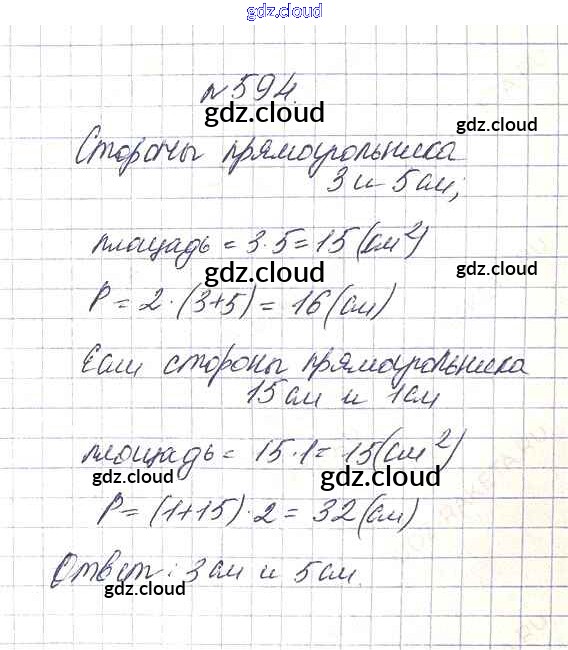 gdz.cloud
№594.
gdz.cloud
gdz.cloud
Стороны прямоугольника
3 и 5 см;
площадь = 3·5 = 15 (см²)
gdz.cloud
gdz.cloud
P = 2·(3+5) = 16 (см)
Если стороны прямоугольника
15 см и 1 см
площадь = 15·1 = 15 (см²)
gdz.cloud
gdz.cloud
P = (1+15)·2 = 32 (см)
Ответ: 3 см и 5 см.
gdz.cloud